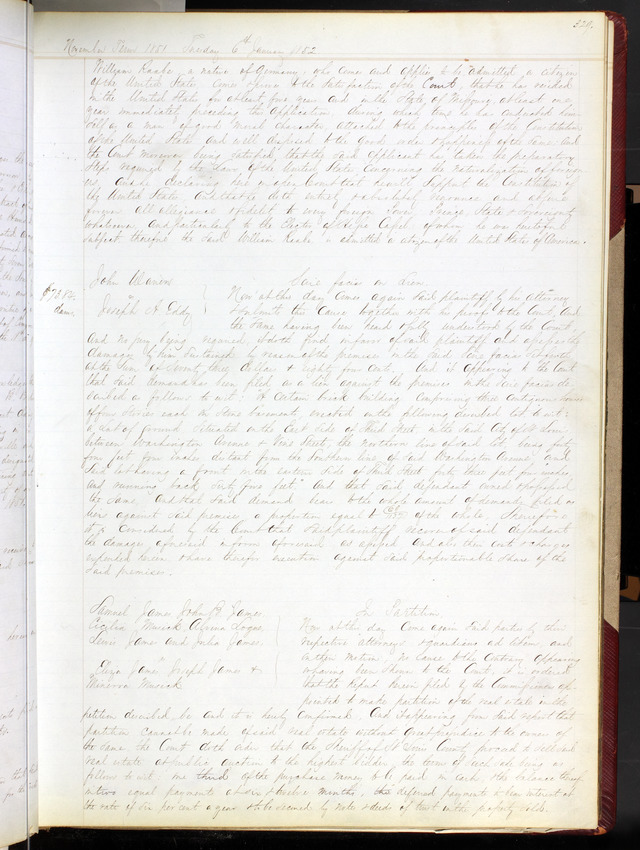 329.
November Term 1851 Tuesday 6th January 1852
William Raabe, a native of Germany, who comes and applies to be admitted a citizen
of the United States, comes and to the satisfaction of the Court, that he has resided
in the United States for at least five years and in the State of Missouri, at least one
year immediately preceding this application, during which time he has conducted him
self as a man of good moral character attached to the principles of the Constitution
of the United States and well disposed to the good order & happiness of the same. And
the Court moreover being satisfied, that the said applicant has taken the preparatory
steps required by the laws of the United States concerning the naturalization of foreign
ers, and he declaring here in open Court that he will support the Constitution of
the United States, and that he doth entirely & absolutely renounce and abjure
forever all allegiance & fidelity to every foreign Power, Prince, State & Sovereignty
whatsoever, and particularly to the Elector of Hesse Cassel of whom he was formerly a
subject, therefore the said William Raabe is admitted a citizen of the United States of America.
John Evans
vs
Joseph A. Eddy
Scire facias on Lien
$73.84
dam.
Now at this day comes again said plaintiff by his attorney
& submits this Cause together with his proofs to the Court, And
the same having been heard & fully understood by the Court,
and no jury being required, & doth find in favor of said plaintiff, and assess the
damages by him sustained by reason of the premises in the said Scire facias set forth
at the sum of Seventy three dollars & eighty four cents. And it appearing to the Court
that said demand has been filed as a lien against the premises in the Scire facias de
scribed as follows to wit: A certain brick building comprising three contiguous houses
of four stories each in stone basement, erected on the following described lot to wit:
a lot of ground situated on the East side of Third Street in the said City of St Louis
between Washington Avenue & Vine Street, the northern line of said lot being forty
four feet four inches distant from the Southern line of said Washington Avenue, and
said lot having a front on the eastern side of Third Street forty three feet four inches
and running back sixty four feet. And that said defendant owned
the same, And that said demand bears to the whole amount of demands filed as
liens against said premises a proportion equal to of the whole. Therefore
it is considered by the Court that said plaintiff recover of said defendant
the damages aforesaid in form aforesaid as assessed And also their costs & charges
expended herein & have therefor execution against said proportionable share of the
said premises.
Samuel James John B. James
Cecilia Musick
Lewis James and Julia James
vs
Eliza James Joseph James &
Minerva Musick
In Partition
Now at this day come again said parties by their
respective attorneys & guardians ad litem, and
neither motion nor cause to the contrary appearing
or having been shown to the Court, it is ordered
that the Report herein filed by the Commissioners ap
pointed to make partition of the real estate in the
petition described, be and it is hereby confirmed. And it appearing from said report that
partition cannot be made of said real estate without great prejudice to the owners of
the same, the Court doth order that the Sheriff of St Louis County proceed to sell said
real estate at public auction to the highest bidder, the terms of such sale being as
follows to wit: one third of the purchase money to be paid in cash, the balance
in two equal payments at six & twelve months, the deferred payments to bear interest at
the rate of six per cent a year & to be secured by notes & deeds of trust on the property sold.